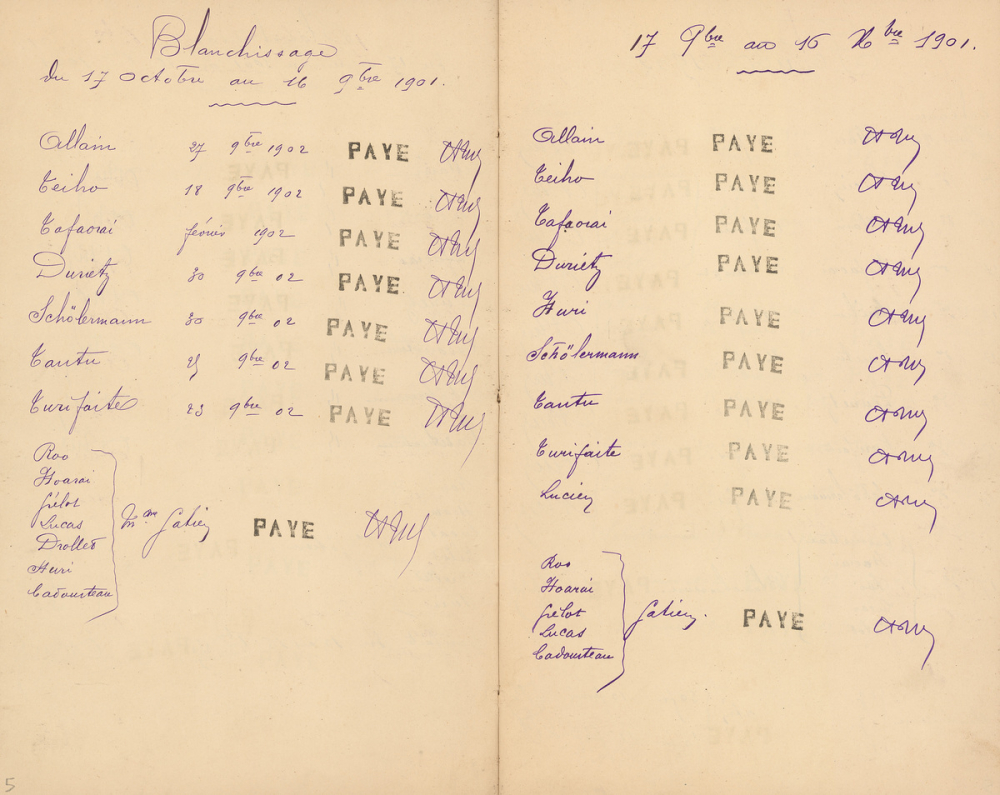 Blanchissage
du 17 Octobre au 16 9bre 1901.
Allain 27 9bre 1902 PAYE
Teiho 18 9bre 1902 PAYE
Tafaorai février 1902 PAYE
Durietz 30 9bre 02 PAYE
Schölermann 30 9bre 02 PAYE
Tautu 25 9bre 02 PAYE
Turifaite 23 9bre 02 PAYE
Roo
Hoarai
Gélot
Lucas
Drollet
Huri
Cadousteau
Mme Gatien PAYE
17 9bre au 16 Xbre 1901.
Allain PAYE
Teiho PAYE
Tafaorai PAYE
Durietz PAYE
Huri PAYE
Schölermann PAYE
Tautu PAYE
Turifaite PAYE
Lucien PAYE
Roo
Hoarai
Gélot
Lucas
Cadousteau
Gatien. PAYE
5